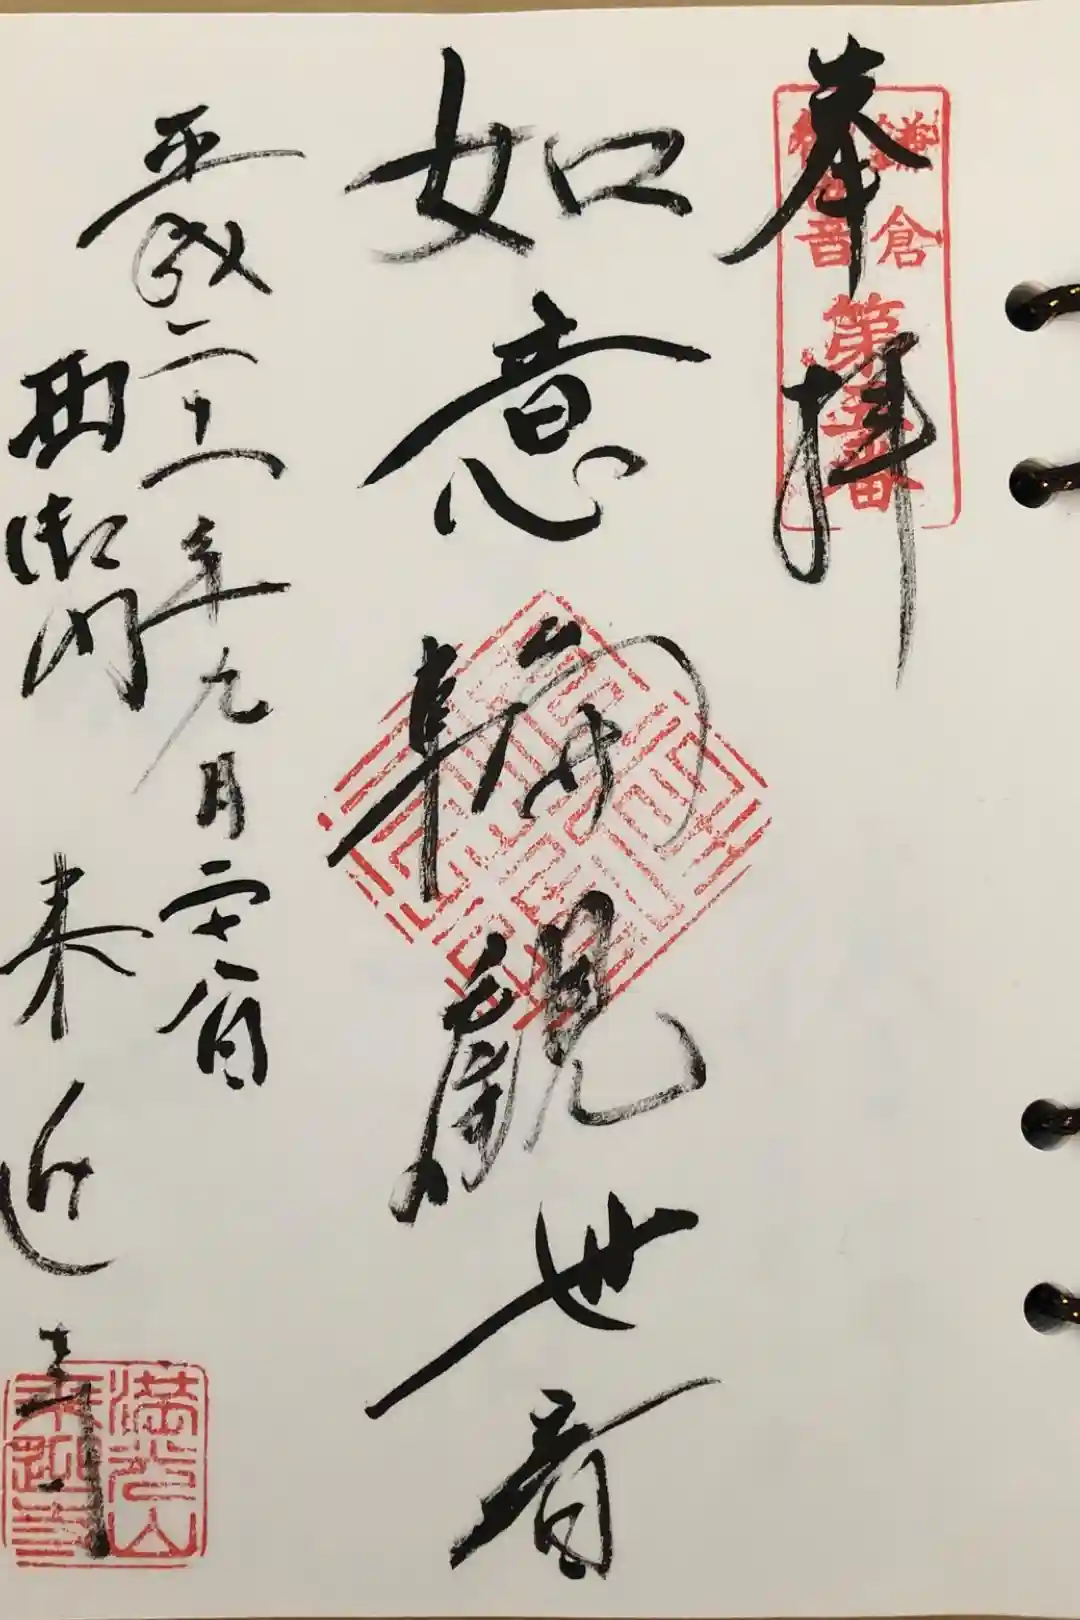 奉拝
鎌倉
観世音
第五番
如意輪観世音
平成二十一年九月二十八日
西御門
来迎寺
満光山
来迎寺